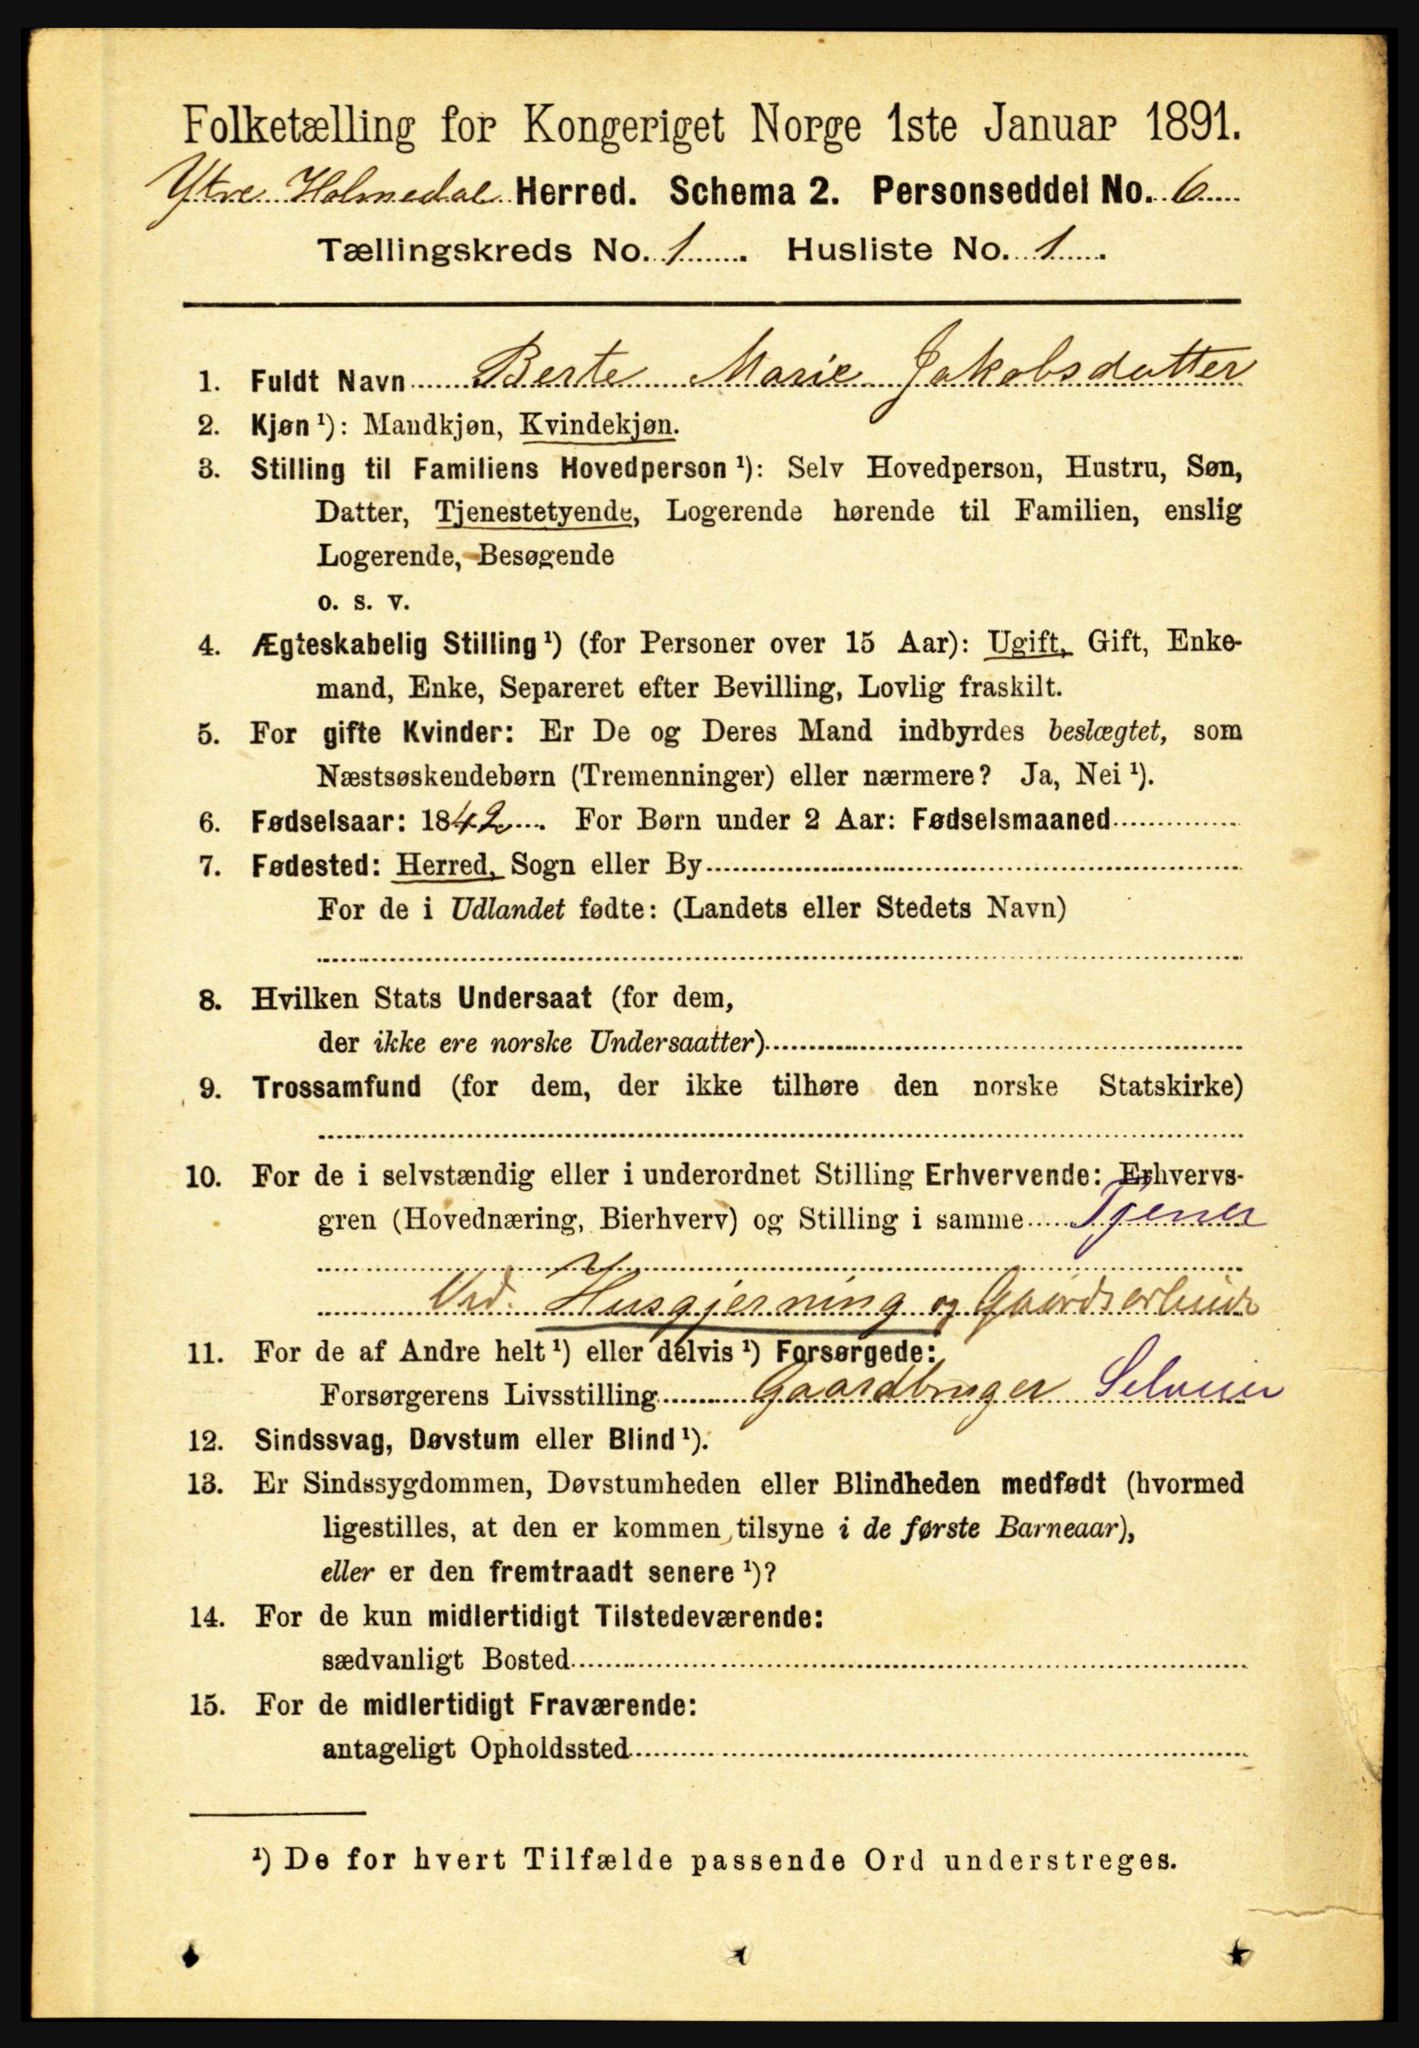 Folketælling for Kongeriget Norge 1ste Januar 1891.
Ytre Holmedal Herred. Schema 2. Personseddel No. 6
Tællingskreds No. 1. Husliste No. 1.
1. Fuldt Navn Berte Marie Jakobsdatter
2. Kjøn ¹): Mandkjøn, Kvindekjøn.
3. Stilling til Familiens Hovedperson ¹): Selv Hovedperson, Hustru, Søn,
Datter, Tjenestetyende, Logerende hørende til Familien, enslig
Logerende, Besøgende
o. s. v.
4. Ægteskabelig Stilling ¹) (for Personer over 15 Aar): Ugift, Gift, Enke-
mand, Enke, Separeret efter Bevilling, Lovlig fraskilt.
5. For gifte Kvinder: Er De og Deres Mand indbyrdes beslægtet, som
Næstsøskendebørn (Tremenninger) eller nærmere? Ja, Nei ¹).
6. Fødselsaar: 1842. For Børn under 2 Aar: Fødselsmaaned
7. Fødested: Herred, Sogn eller By
For de i Udlandet fødte: (Landets eller Stedets Navn)
8. Hvilken Stats Undersaat (for dem,
der ikke ere norske Undersaatter)
9. Trossamfund (for dem, der ikke tilhøre den norske Statskirke)
10. For de i selvstændig eller i underordnet Stilling Erhvervende: Erhvervs-
gren (Hovednæring, Bierhverv) og Stilling i samme Tjener
Ved. Husgjerning og Gaardsarbeide
11. For de af Andre helt ¹) eller delvis ¹) Forsørgede:
Forsørgerens Livsstilling Gaardbruger Selveier
12. Sindssvag, Døvstum eller Blind ¹).
13. Er Sindssygdommen, Døvstumheden eller Blindheden medfødt (hvormed
ligestilles, at den er kommen tilsyne i de første Barneaar),
eller er den fremtraadt senere ¹)?
14. For de kun midlertidigt Tilstedeværende:
sædvanligt Bosted
15. For de midlertidigt Fraværende:
antageligt Opholdssted
¹) De for hvert Tilfælde passende Ord understreges.